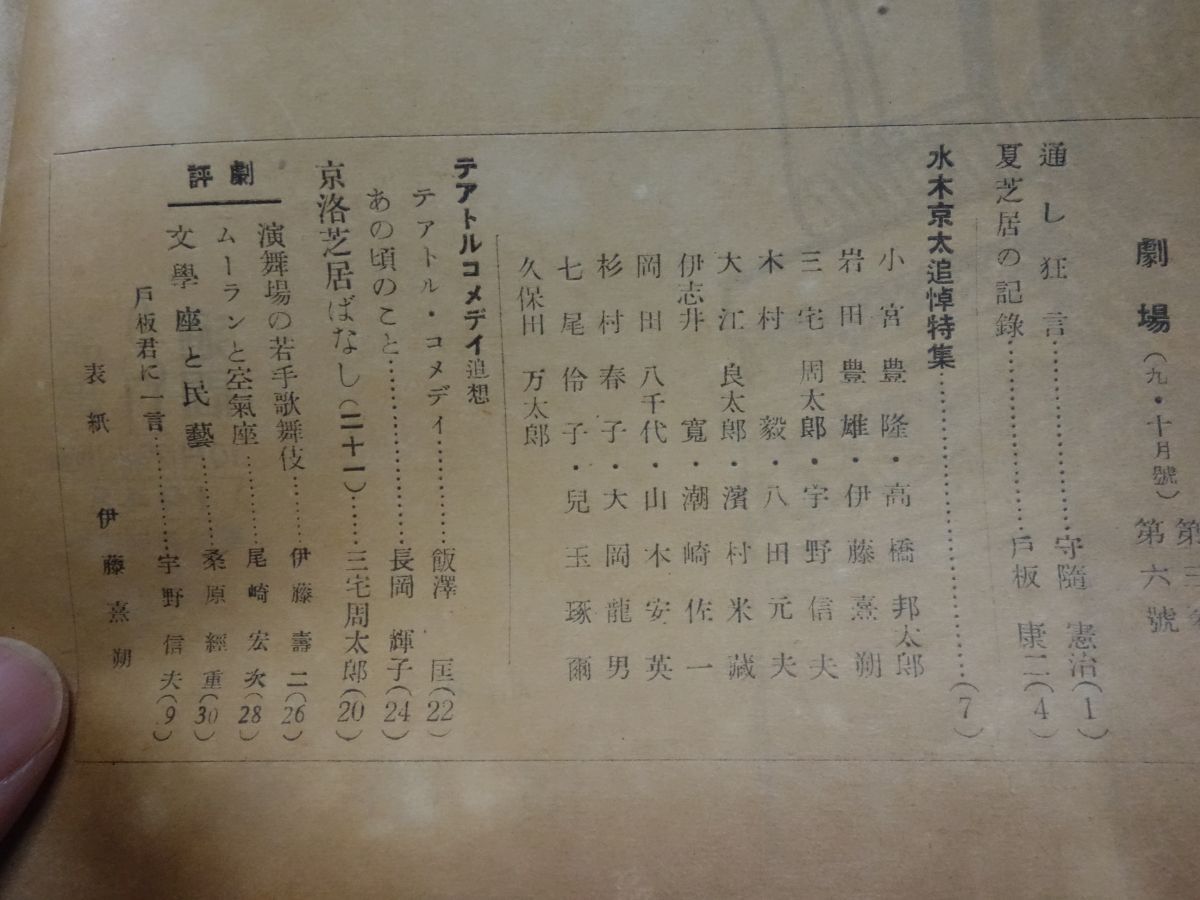 劇場(九・十月號)第三
第六號
通し狂言………守隨憲治(1)
夏芝居の記錄………戶板康二(4)
水木京太追悼特集………(7)
小宮豊隆・高橋邦太郎
岩田豊雄・伊藤熹朔
三宅周太郎・宇野信夫
木村毅・八田元夫
大江良太郎・濱村米藏
伊志井寬・潮崎佐一
岡田八千代・山木安英
杉村春子・大岡龍男
七尾伶子・兒玉琢爾
久保田万太郎
テアトルコメデイ追想
テアトル・コメデイ………飯澤匡(22)
あの頃のこと………長岡輝子(24)
京洛芝居ばなし(二十一)……三宅周太郎(20)
劇評
演舞場の若手歌舞伎……伊藤壽二(26)
ムーランと空氣座……尾崎宏次(28)
文學座と民藝……桑原經重(30)
戶板君に一言……宇野信夫(9)
表紙 伊藤熹朔